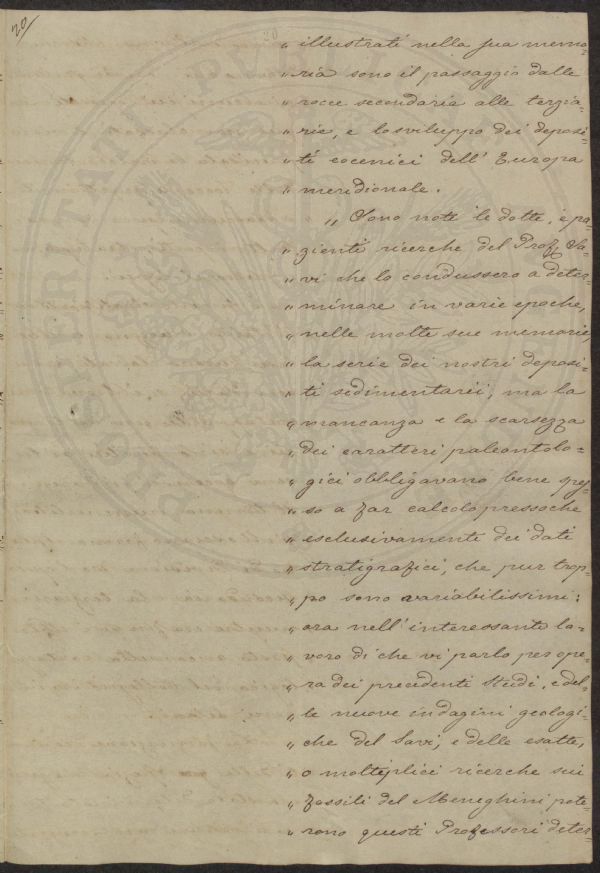 20
„ illustrati nella sua memo-
„ ria sono il passaggio dalle
„ rocce secondaria alle terzia-
„ rie, e lo sviluppo dei deposi-
„ ti eocenici dell' Europa
„ meridionale.
„ Sono note le dotte, e pa-
„ zienti ricerche del Prof. Sa-
„ vi che lo condussero a deter-
„ minare in varie epoche,
„ nelle molte sue memorie,
„ la serie dei nostri deposi-
„ ti sedimentarii, ma la
„ mancanza e la scarsezza
„ dei caratteri paleontolo-
„ gici obbligavano bene spes-
„ so a far calcolo pressoche
„ esclusivamente dei dati
„ stratigrafici, che pur trop-
„ po sono variabilissimi:
„ ora nell'interessante la-
„ voro di che vi parlo per ope-
„ ra dei precedenti studi, e del-
„ le nuove indagini geologi-
„ che del Savi, e delle esatte,
„ o moltiplici ricerche sui
„ fossili del Meneghini pote-
„ rono questi Professori deter-